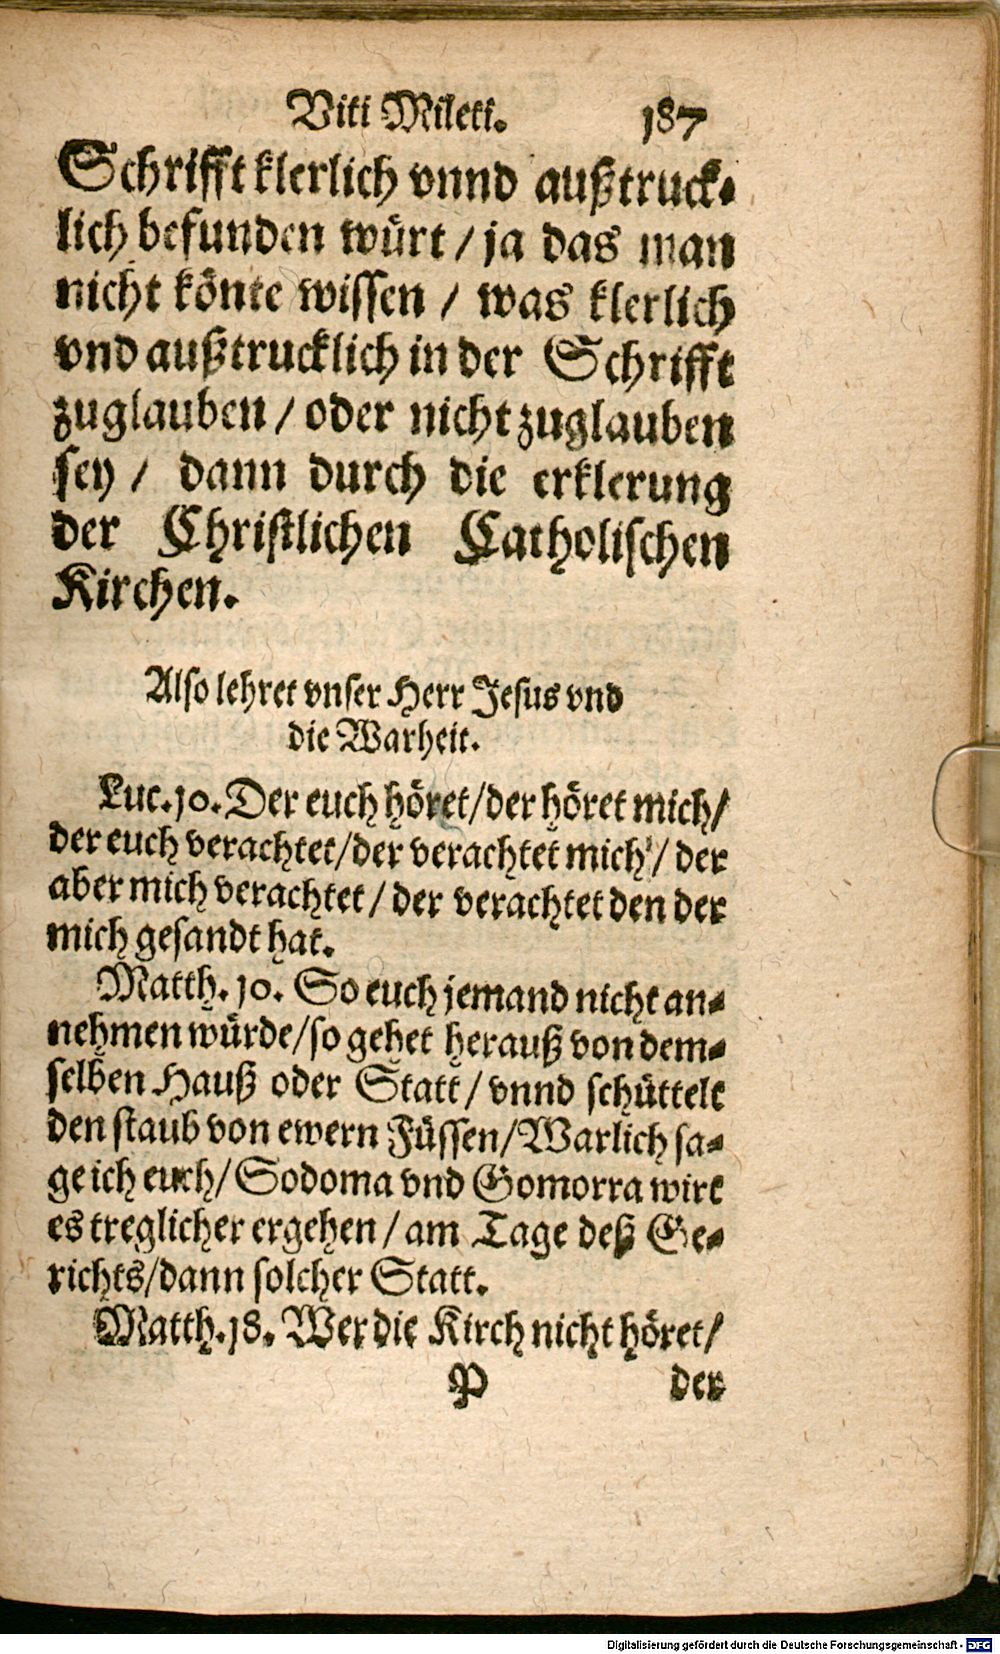 Viti Mileti. 187
Schrifft klerlich vnnd außtruck-
lich befunden würt / ja das man
nicht könte wissen / was klerlich
vnd außtrucklich in der Schrifft
zuglauben / oder nicht zuglauben
sey / dann durch die erklerung
der Christlichen Catholischen
Kirchen.
Also lehret vnser Herr Jesus vnd
die Warheit.
Luc. 10. Der euch höret/der höret mich/
der euch verachtet/der verachtet mich / der
aber mich verachtet / der verachtet den der
mich gesandt hat.
Matth. 10. So euch jemand nicht an-
nehmen würde/so gehet herauß von dem-
selben Hauß oder Statt / vnnd schüttelt
den staub von ewern Füssen/Warlich sa-
ge ich euch/ Sodoma vnd Gomorra wirt
es treglicher ergehen / am Tage deß Ge-
richts/dann solcher Statt.
Matth. 18. Wer die Kirch nicht höret/
P der
Digitalisierung gefördert durch die Deutsche Forschungsgemeinschaft - DFG